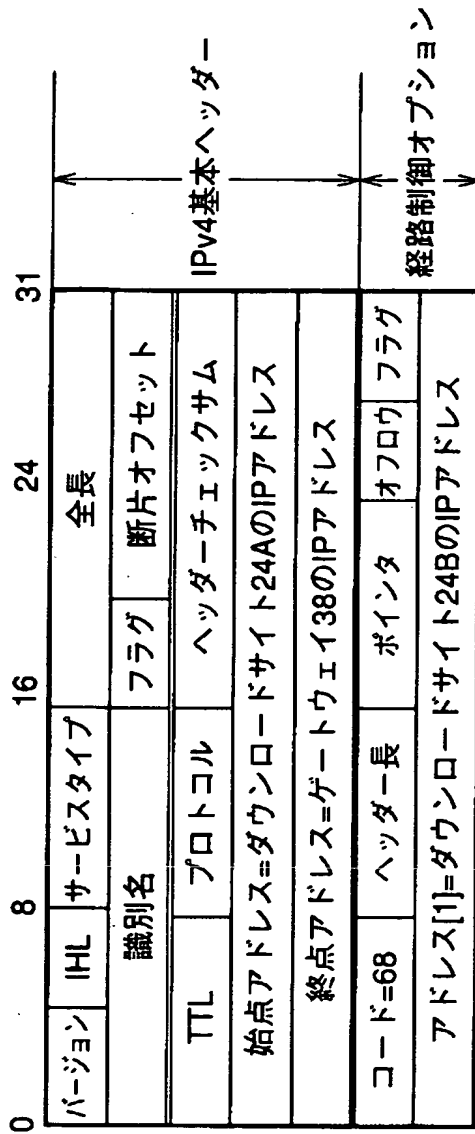 0 8 16 24 31
バージョン IHL サービスタイプ 全長
識別名 フラグ 断片オフセット
TTL プロトコル ヘッダーチェックサム
始点アドレス=ダウンロードサイト24AのIPアドレス
終点アドレス=ゲートウェイ38のIPアドレス
IPv4基本ヘッダー
コード=68 ヘッダー長 ポインタ オフロウ フラグ
アドレス[1]=ダウンロードサイト24BのIPアドレス
経路制御オプション